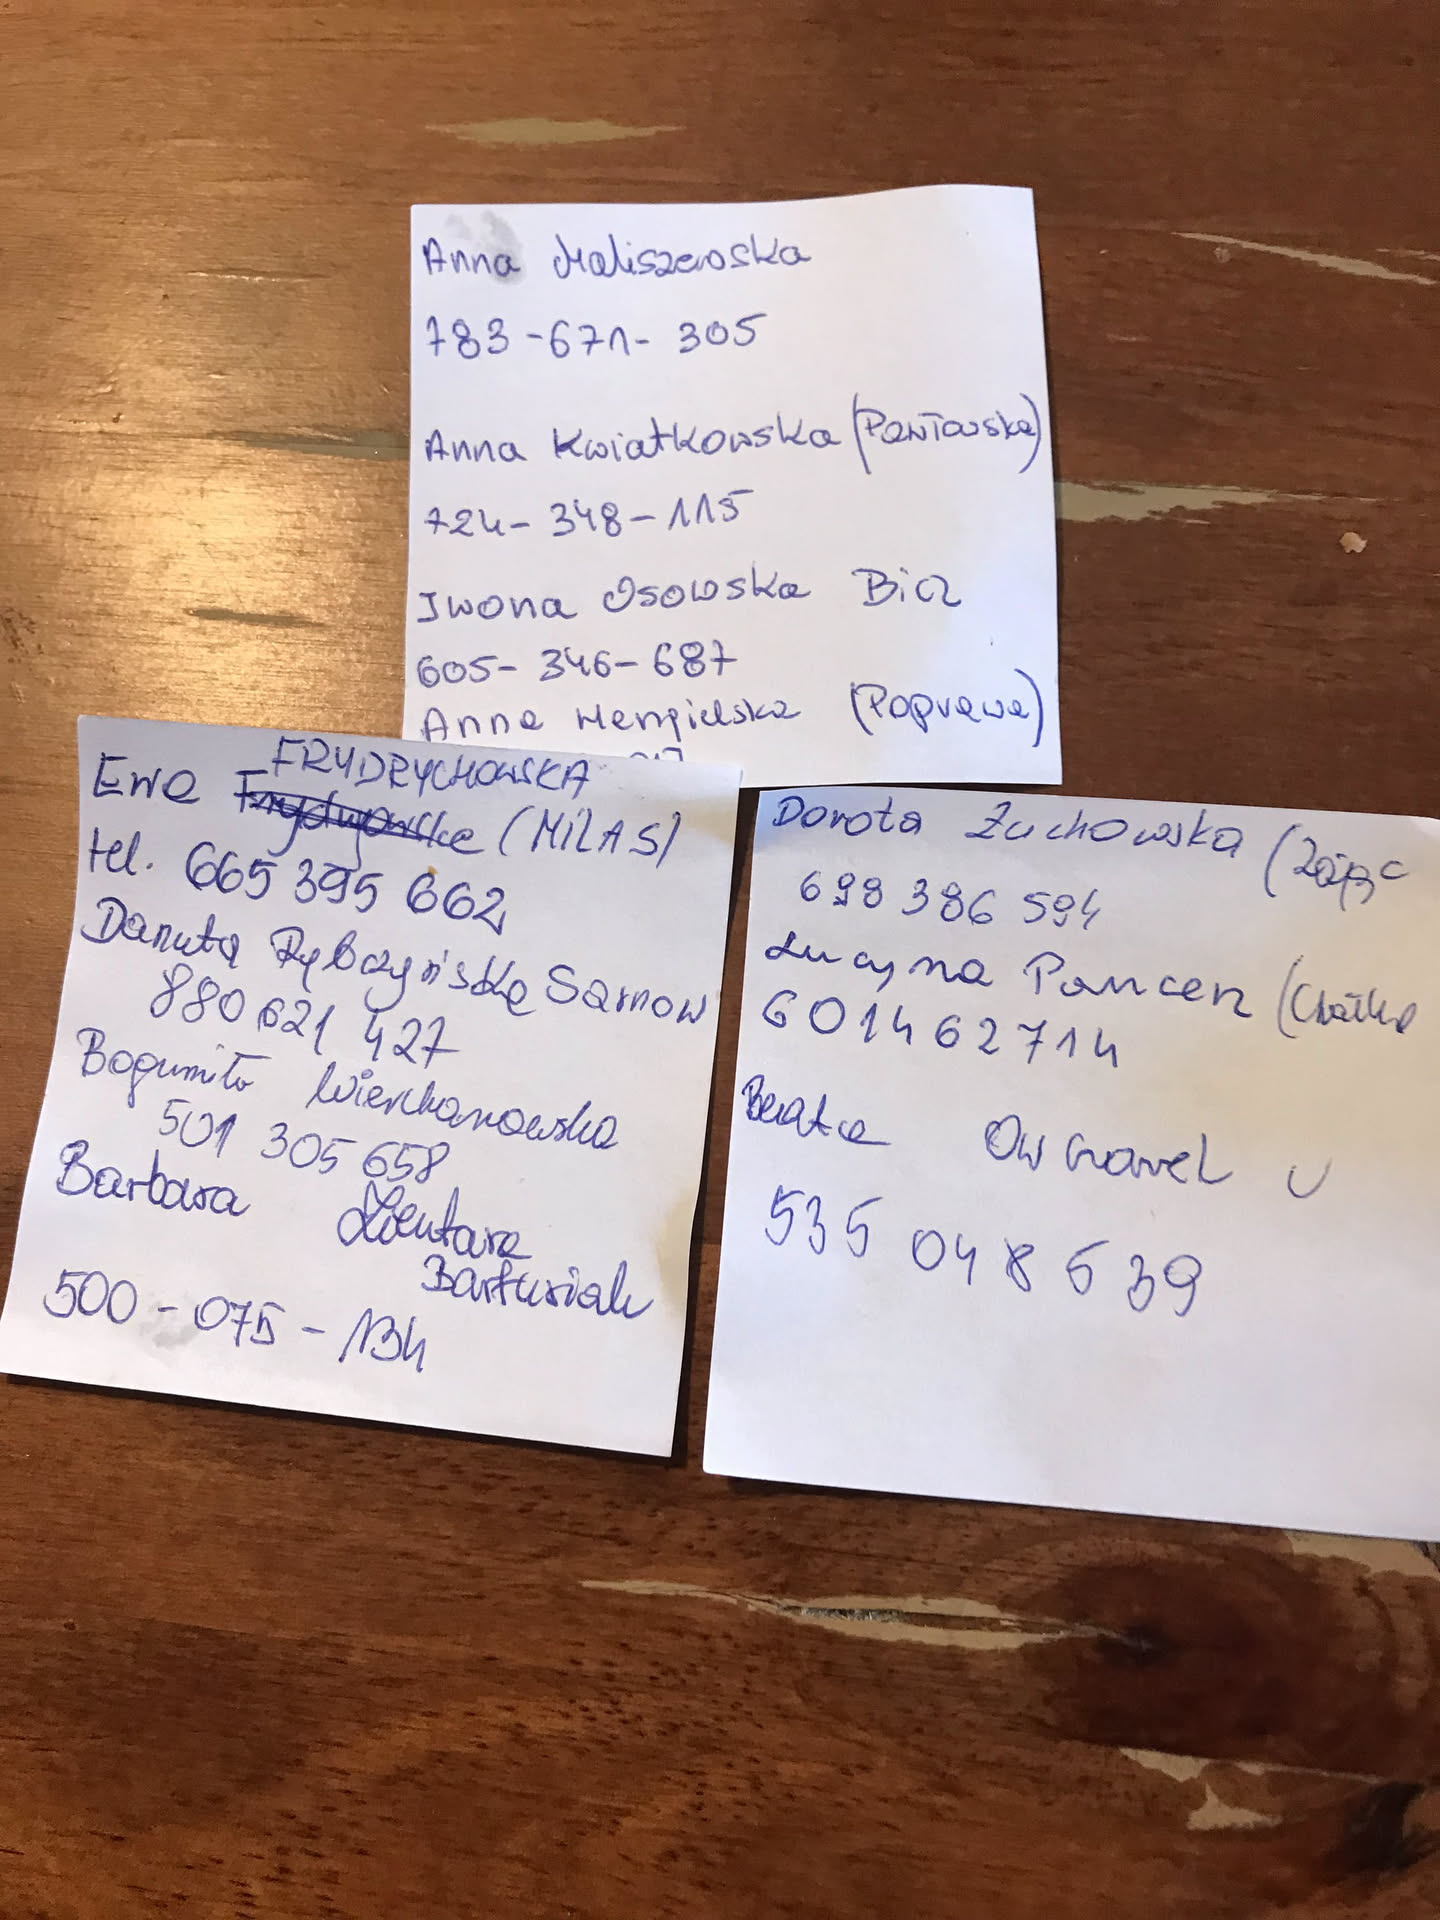 Anna Maliszewska
783-671-305
Anna Kwiatkowska (Pawłowska)
724-348-115
Iwona Osowska Bicz
605-346-687
Anna (Poprawa)
Ewa FRYDRYCHOWSKA
(MILAS)
tel. 665 395 662
Danuta Rybczyńska Sarnow
880 621 427
Bogumiła Wierchanowska
501 305 658
Barbara Zientara
Bartusiak
500-075-134
Dorota Żuchowska (Zając
698 386 594
Łucyna Pancerz
601462714
Beata
535 048 639